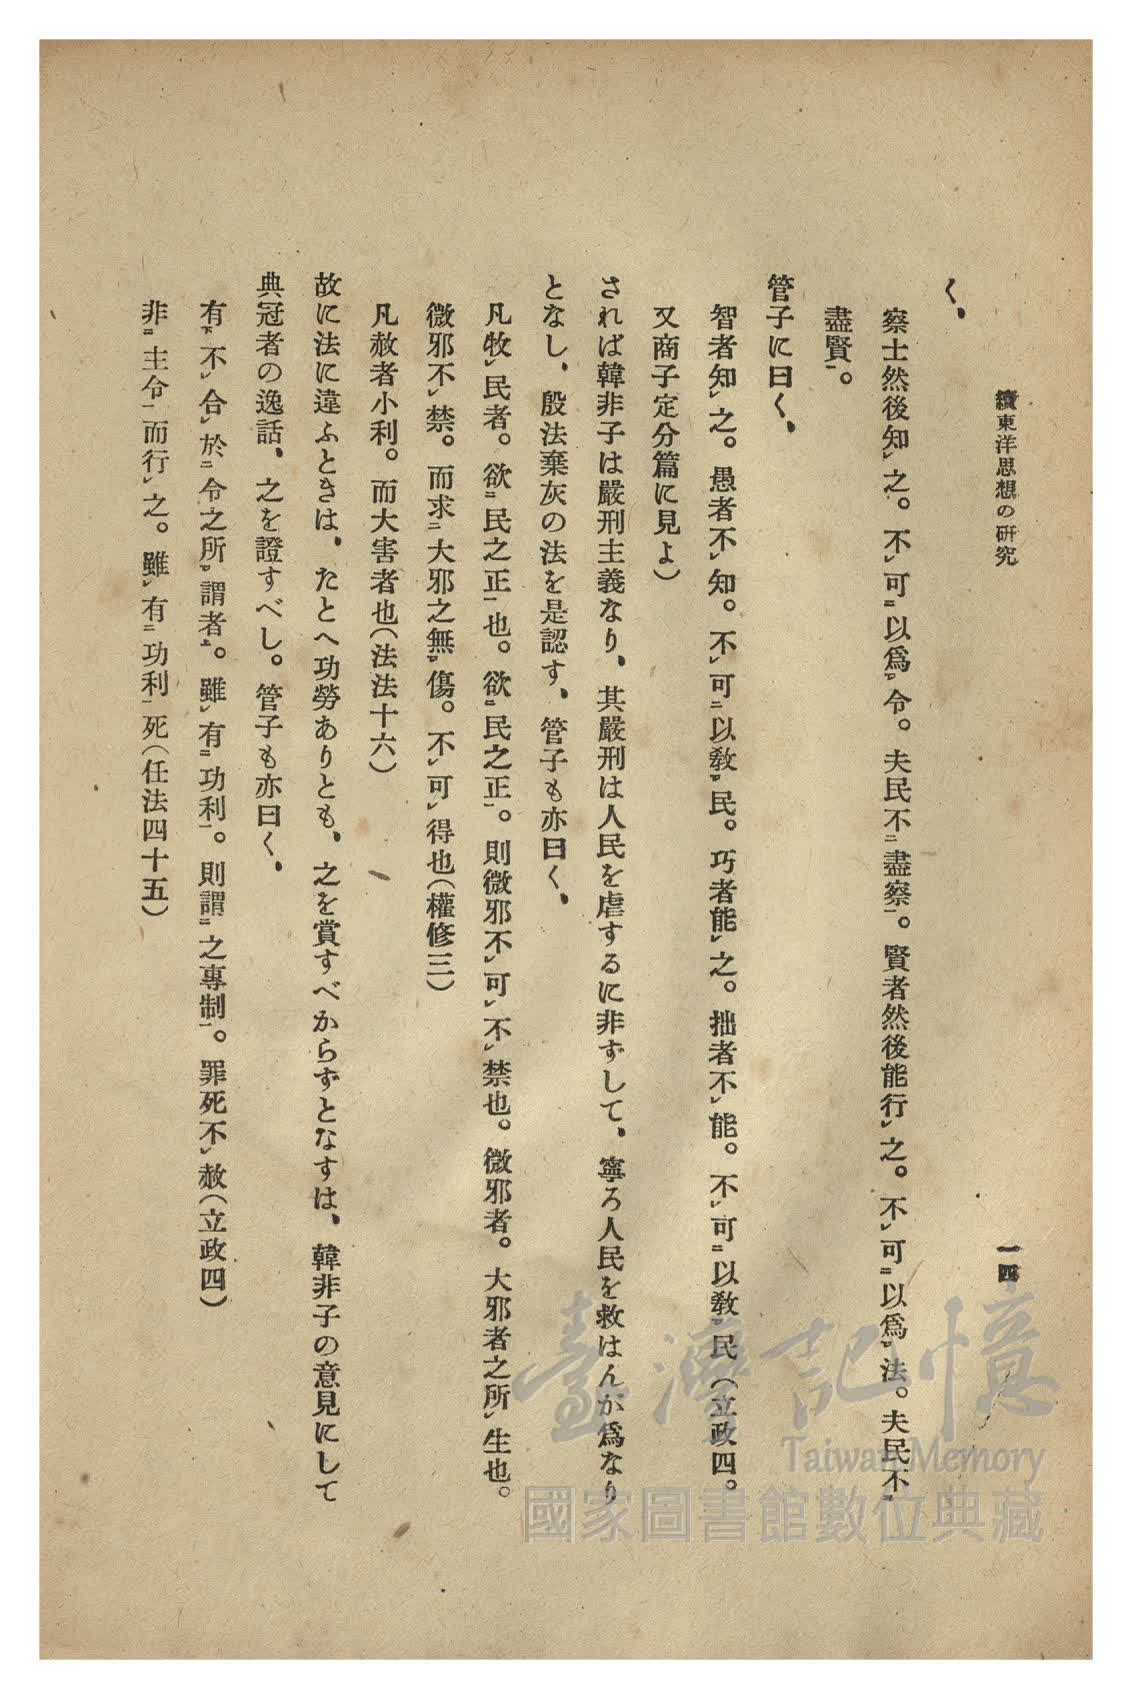 續東洋思想の硏究
一四
く、
察士然後知㆑之。不㆑可㆔以爲㆑令。夫民不㆓盡察㆒。賢者然後能行㆑之。不㆑可㆔以爲㆑法。夫民不㆓
盡賢㆒。
管子に曰く、
智者知㆑之。愚者不㆑知。不㆑可㆓以敎㆑民。巧者能㆑之。拙者不㆑能。不㆑可㆔以敎㆑民（立政四。
又商子定分篇に見よ）
されば韓非子は嚴刑主義なり、其嚴刑は人民を虐するに非ずして、寧ろ人民を救はんが爲なり
となし、殷法棄灰の法を是認す、管子も亦曰く、
凡牧㆑民者。欲㆓民之正㆒也。欲㆓民之正㆒。則微邪不㆑可㆑不㆑禁也。微邪者。大邪者之所㆑生也。
微邪不㆑禁。而求㆓大邪之無㆑傷。不㆑可㆑得也（權修三）
凡赦者小利。而大害者也（法法十六）
故に法に違ふときは、たとへ功勞ありとも、之を賞すべからずとなすは、韓非子の意見にして
典冠者の逸話、之を證すべし。管子も亦曰く、
有㆘不㆑合㆓於令之所㆑謂者㆖。雖㆑有㆓功利㆒。則謂㆓之專制㆒。罪死不㆑赦（立政四）
非㆓主令㆒而行㆑之。雖㆑有㆓功利㆒死（任法四十五）
臺灣記憶
Taiwan Memory
國家圖書館數位典藏